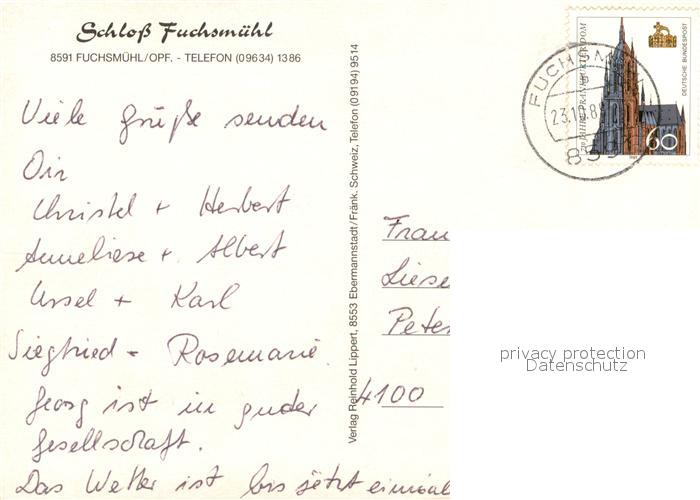 Schloß Fuchsmühl
8591 FUCHSMÜHL/OPF. - TELEFON (09634) 1386
Viele Grüße senden
Dir
Christel + Herbert
Anneliese + Albert
Ursel + Karl
Siegfried - Rosemarie.
Georg ist in guder
Gesellschaft.
Das Wetter ist bis jetzt einmal
Verlag Reinhold Lippert, 8553 Ebermannstadt/Fränk. Schweiz, Telefon (09194) 9514
FUCHSM
23.10.8
859
FRANKFURTER DOM
DEUTSCHE BUNDESPOST
60
Frau
Liese
Peter
4100
privacy protection
Datenschutz